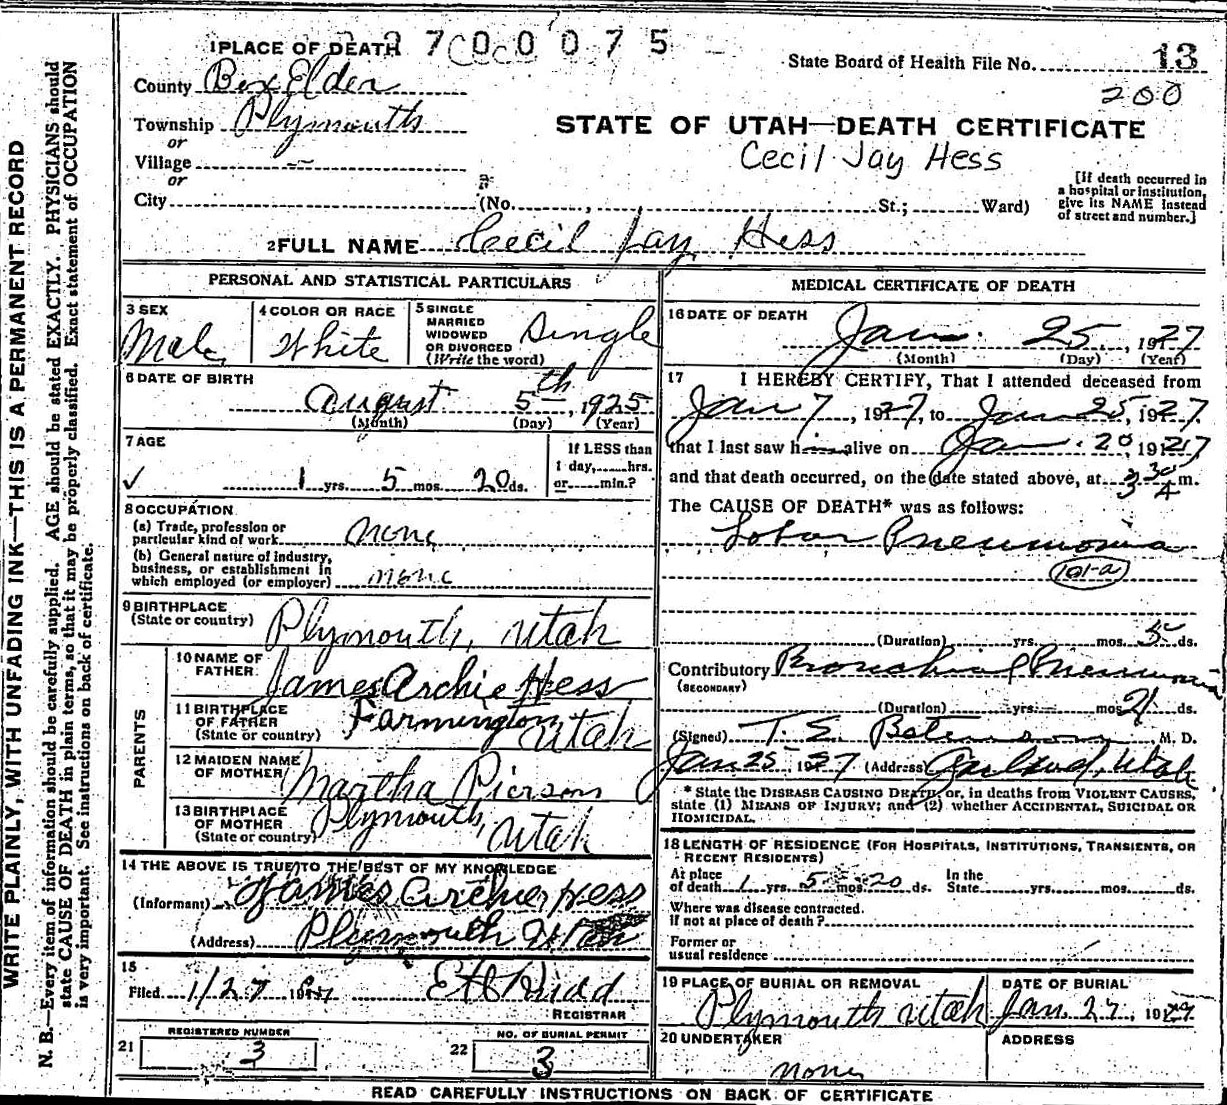 2700075
1 PLACE OF DEATH
State Board of Health File No. 13
County Box Elder
200
Township Plymouth
STATE OF UTAH—DEATH CERTIFICATE
or
Cecil Jay Hess
Village
or
City (No. , St.; Ward)
[If death occurred in
a hospital or institution,
give its NAME instead
of street and number.]
2 FULL NAME Cecil Jay Hess
PERSONAL AND STATISTICAL PARTICULARS
3 SEX
Male
4 COLOR OR RACE
White
5 SINGLE
MARRIED
WIDOWED
OR DIVORCED
(Write the word)
Single
6 DATE OF BIRTH
August 5th, 1925
(Month) (Day) (Year)
7 AGE
1 yrs. 5 mos. 20 ds.
If LESS than
1 day, hrs.
or min.?
8 OCCUPATION
(a) Trade, profession or
particular kind of work none
(b) General nature of industry,
business, or establishment in
which employed (or employer) none
9 BIRTHPLACE
(State or country) Plymouth, Utah
PARENTS
10 NAME OF
FATHER James Archie Hess
11 BIRTHPLACE
OF FATHER
(State or country) Farmington Utah
12 MAIDEN NAME
OF MOTHER Martha Pierson
13 BIRTHPLACE
OF MOTHER
(State or country) Plymouth, Utah
14 THE ABOVE IS TRUE TO THE BEST OF MY KNOWLEDGE
(Informant) James Archie Hess
(Address) Plymouth Utah
15
Filed 1/27 1927
Rudd
REGISTRAR
21 REGISTERED NUMBER
3
22 NO. OF BURIAL PERMIT
3
MEDICAL CERTIFICATE OF DEATH
16 DATE OF DEATH
Jan. 25, 1927
(Month) (Day) (Year)
17 I HEREBY CERTIFY, That I attended deceased from
Jan 7, 1927, to Jan 25, 1927
that I last saw h alive on Jan. 20 1927
and that death occurred, on the date stated above, at m.
The CAUSE OF DEATH* was as follows:
Lobar Pneumonia
101-a
(Duration) yrs. mos. 5 ds.
Contributory Bronchial Pneumonia
(SECONDARY)
(Duration) yrs. mos. 21 ds.
(Signed) T. E. M. D.
Jan 25, 1927 (Address) Garland, Utah
* State the DISEASE CAUSING DEATH, or, in deaths from VIOLENT CAUSES,
state (1) MEANS OF INJURY; and (2) whether ACCIDENTAL, SUICIDAL OR
HOMICIDAL.
18 LENGTH OF RESIDENCE (FOR HOSPITALS, INSTITUTIONS, TRANSIENTS, OR
RECENT RESIDENTS)
At place
of death 1 yrs. 5 mos. 20 ds. In the
State yrs. mos. ds.
Where was disease contracted.
If not at place of death?
Former or
usual residence
19 PLACE OF BURIAL OR REMOVAL
Plymouth Utah
DATE OF BURIAL
Jan. 27, 1927
20 UNDERTAKER
none
ADDRESS
READ CAREFULLY INSTRUCTIONS ON BACK OF CERTIFICATE
WRITE PLAINLY, WITH UNFADING INK—THIS IS A PERMANENT RECORD
N. B.—Every item of information should be carefully supplied. AGE should be stated EXACTLY. PHYSICIANS should
state CAUSE OF DEATH in plain terms, so that it may be properly classified. Exact statement of OCCUPATION
is very important. See instructions on back of certificate.